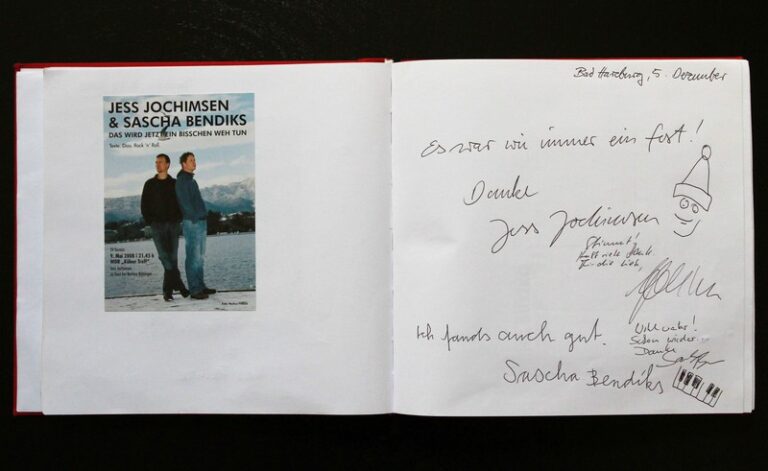 JESS JOCHIMSEN
& SASCHA BENDIKS
DAS WIRD JETZT EIN BISSCHEN WEH TUN
Texte. Dias. Rock 'n' Roll.
9. Mai 2008 | 21.45 h
WDR „Kölner Treff"
Bad Harzburg, 5. Dezember
Es war wie immer ein Fest!
Danke
Jess Jochimsen
Stimmt!
Für die Lieb,
Ich fands auch gut.
Wohl wahr!
Schon wieder...
Danke
Sascha Bendiks